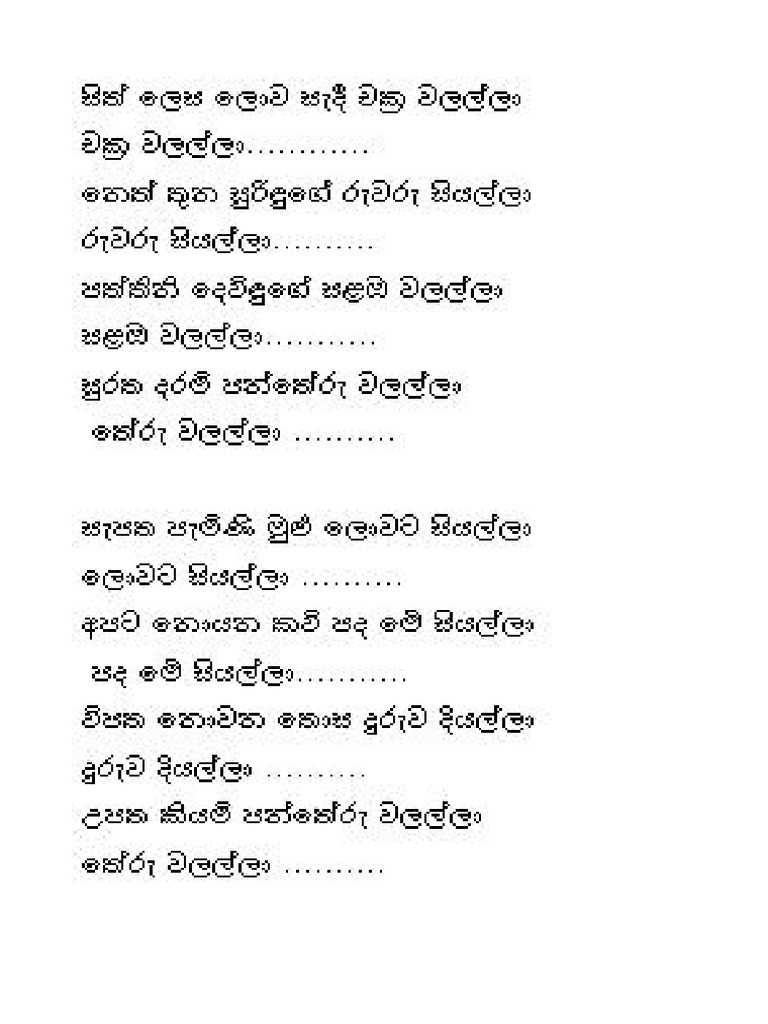 සිත් ලෙස ලොව සැදී චක්‍ර වලල්ලා
චක්‍ර වලල්ලා............
නෙත් තුන සුරිඳුගේ රුවරු සියල්ලා
රුවරු සියල්ලා..........
පත්තිනි දෙවිඳුගේ සළඹ වලල්ලා
සළඹ වලල්ලා...........
සුරත දරමි පන්තේරු වලල්ලා
තේරු වලල්ලා ..........
සැපත පැමිණි මුළු ලොවට සියල්ලා
ලොවට සියල්ලා ..........
අපට නොයන කවි පද මේ සියල්ලා
පද මේ සියල්ලා...........
විපත නොවන තොස දුරුව දියල්ලා
දුරුව දියල්ලා ..........
උපත කියමි පන්තේරු වලල්ලා
තේරු වලල්ලා ..........